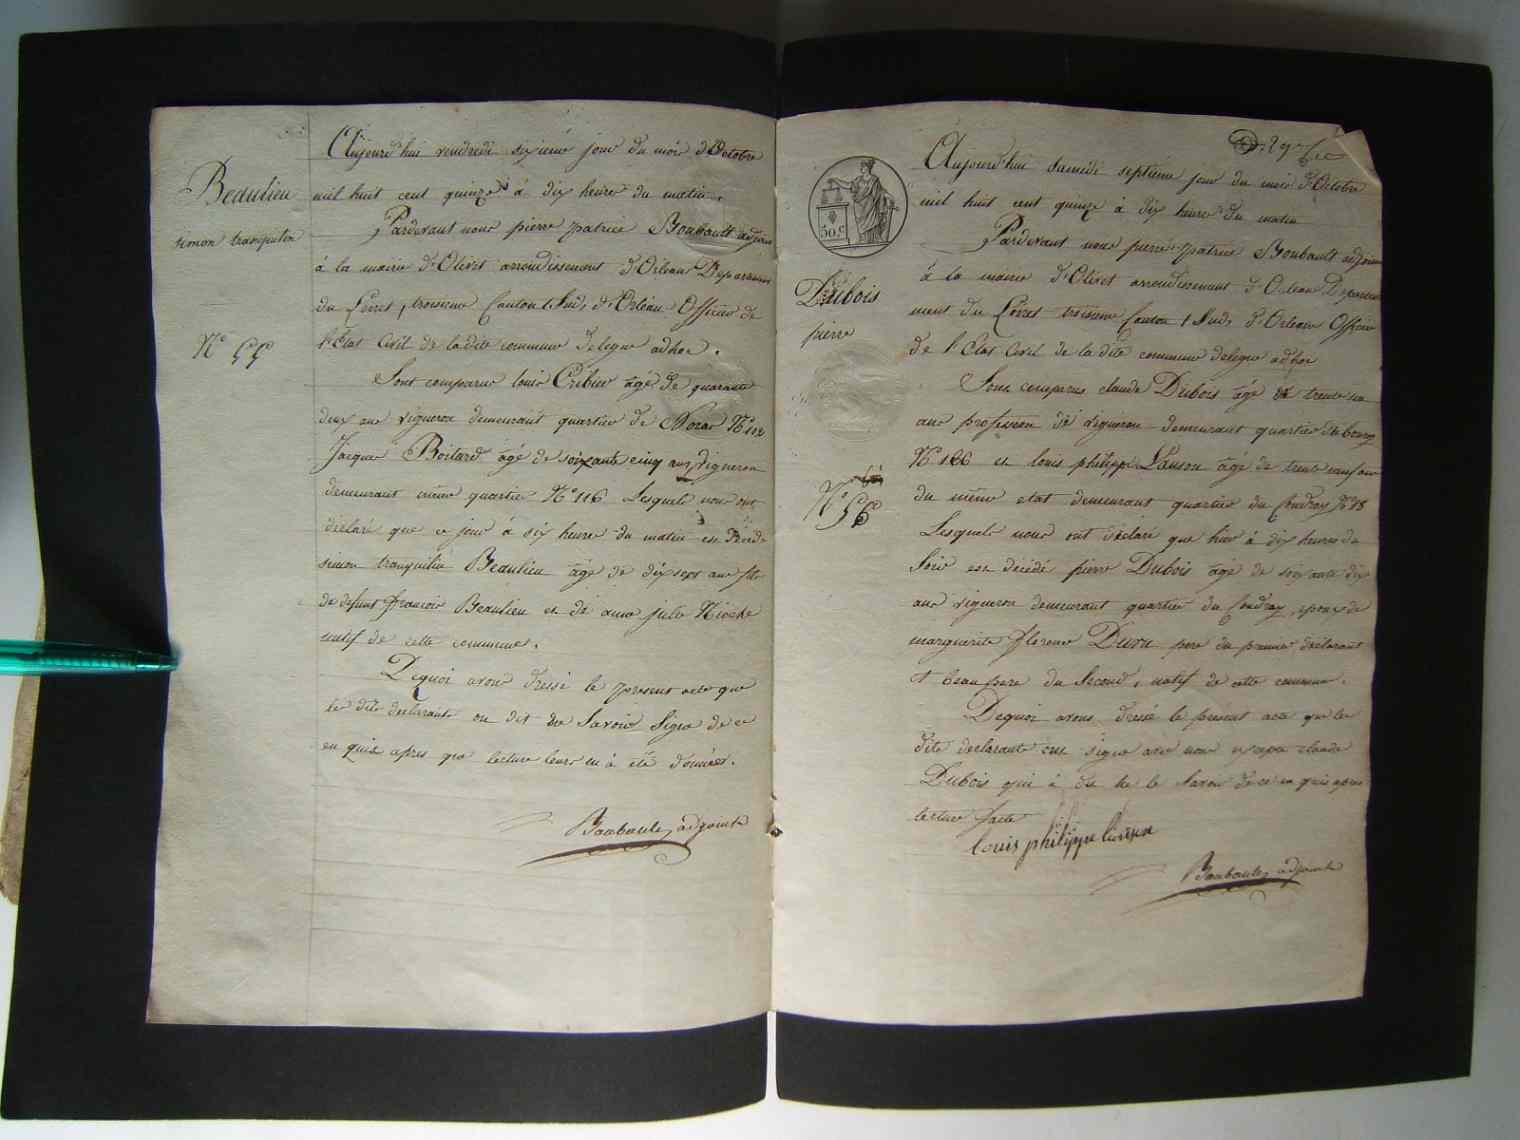 Beaulieu
simon tranquilin
N° 55
Aujourd'hui vendredi sixieme jour du mois d'Octobre
mil huit cent quinze à dix heure du matin.
Pardevant nous pierre patrice Boubault adjoint
à la mairie d'Olivet arrondissement d'Orléans Departement
du Loiret, troisieme Canton (Sud) d'Orléans Officier de
l'Etat Civil de ladite commune delegue adhoc.
Sont comparus louis Cribier âgé de quarante
deux ans vigneron demeurant quartier de N°102
Jacque Boilard âgé de soixante cinq ans, vigneron
demeurant même quartier N° 116 Lesquels nous ont
declaré que ce jour à six heure du matin est
simon tranquilin Beaulieu âgé de dix sept ans fils
de defunt francois Beaulieu et de anne julie
natif de cette commune.
Dequoi avons dressé le présent acte que
les dits declarants on dit ne Savoir Signer de ce
en quis apres que lecture leurs en à été donnés.
Boubault adjoint
50.C
Dubois
pierre
N° 56
Aujourd'hui samedi septieme jour du mois d'Octobre
mil huit cent quinze à dix heure du matin
Pardevant nous pierre patrice Boubault adjoint
à la mairie d'Olivet arrondissement d'Orléans Departe
ment du Loiret troisieme Canton (Sud) d'Orléans Officier
de l'Etat Civil de la dite commune delegue adhoc
Sont comparus claude Dubois âgé de trente
ans profession de vigneron demeurant quartier du bourg
N° 186 et louis philippe âgé de trente ans
du même etat demeurant quartier du Coudray N° 18
Lesquels nous ont déclaré que hier à dix heures du
Soir est décédé pierre Dubois âgé de soixante dix
ans vigneron demeurant quartier du Coudray, epoux de
marguerite pere du premier déclarant
et beau pere du Second, natif de cette commune.
Dequoi avons dressé le présent acte que les
dits declarants ont signé avec nous excepté claude
Dubois qui à dit ne le Savoir de ce en quis apres
lecture faite
louis philippe
Boubault adjoint